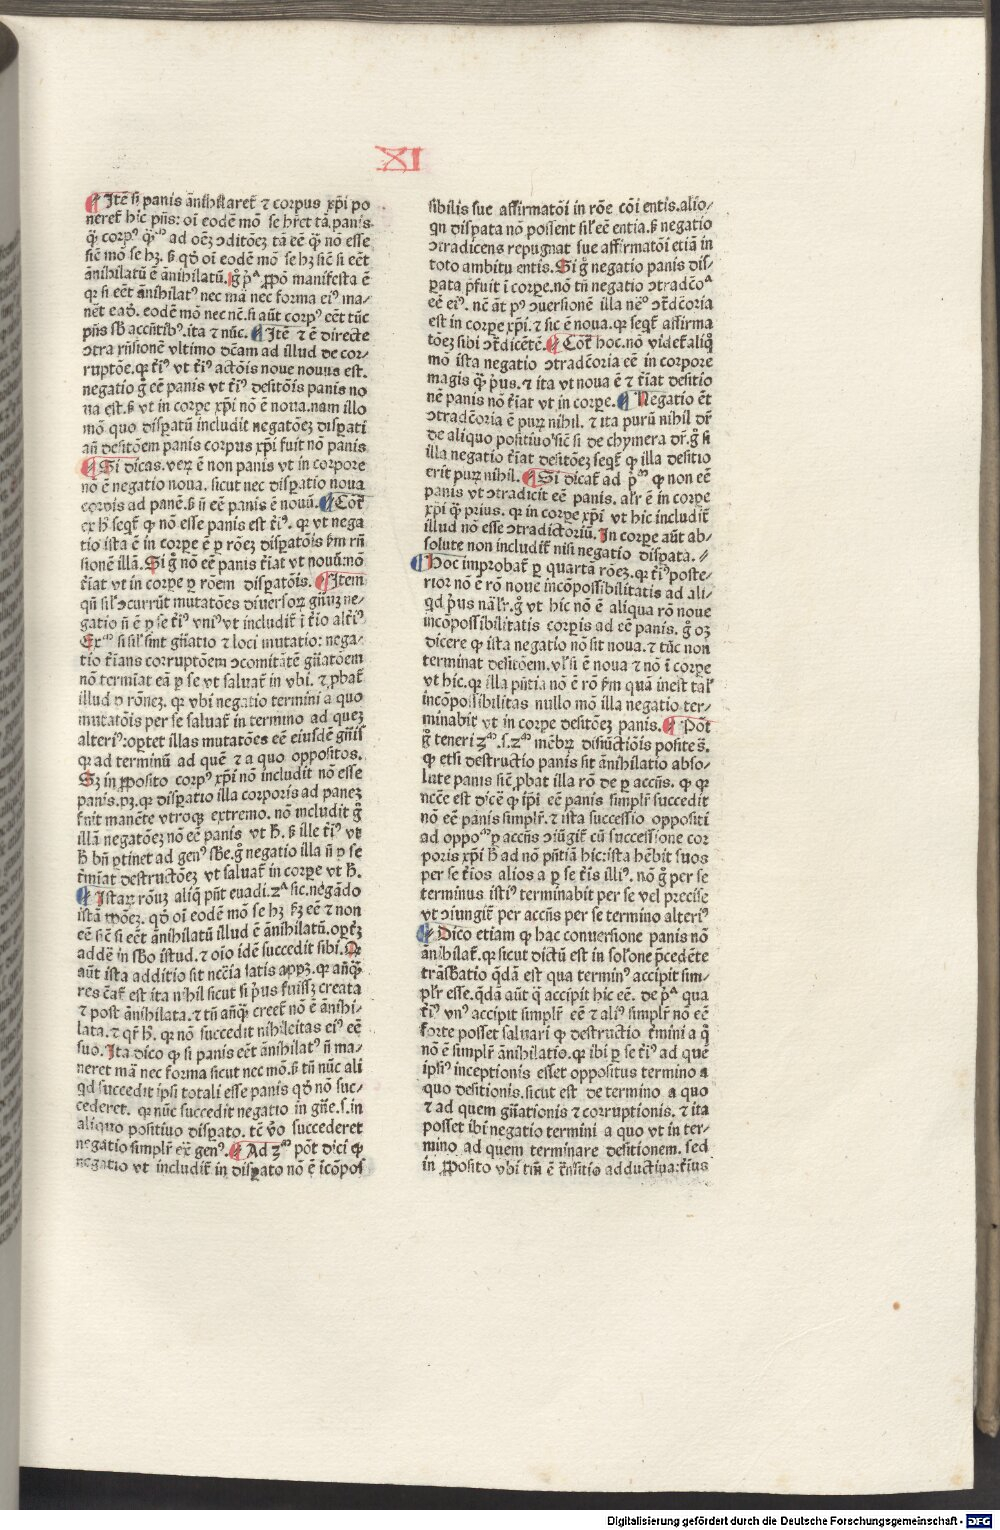 XI
¶ Itē si panis ānihilaret̄ ⁊ corpus xp̄i po
neret̄ hic p̄ns: oī eodē mō se hr̄et tā panis
q̄ corpꝰ q̄ ad oēꝫ ↄditōeꝫ tā eē q̄ nō esse
siē mō se hꝫ. ß qð oī eodē mō se hꝫ siē si eēt
ānihilatū ē ānihilatū. Igr̄ pꝫ ꝓpō manifesta ē
qꝛ si eēt ānihilatꝰ nec mā nec forma eiꝰ ma⸗
nēt eað. eodē mō nec nē. si aūt corpꝰ eēt tūc
p̄ns sß accn̄tibꝰ. ita ⁊ nūc. ¶ Itē ⁊ ē directe
ↄtra rn̄sionē vltimo dc̄am ad illud de cor⸗
ruptōe. qꝛ t̄iꝰ vt t̄iꝰ actōis noue nouus est.
negatio g̊ eē panis vt t̄iꝰ desitōis panis no
ua est. ß vt in corꝑe xp̄i nō ē noua. nam illo
mō quo disꝑatū includit negatōeꝫ disꝑati
an̄ desitōem panis corpus xp̄i fuit nō panis
¶ Si dicas. veꝝ ē non panis vt in corpore
nō ē negatio noua. sicut nec disꝑatio noua
corꝑis ad panē. ß n̄ eē panis ē nouū. ¶ Cōt̄
ex h̄ seqt̄ ꝙ nō esse panis est t̄iꝰ. qꝛ vt nega
tio ista ē in corꝑe ē ꝑ rōeꝫ disꝑatōis ßm rn̄
sionē illā. Si g̊ nō eē panis t̄iat vt nouū: nō
t̄iat vt in corꝑe ꝑ rōem disꝑatōis. ¶ Item
qn̄ sil̓ ↄcurrūt mutatōes diuersoꝝ gn̄uꝫ ne⸗
gatio n̄ ē ꝑ se t̄iꝰ vniꝰ vt includit̄ ī t̄io alt̄iꝰ
Exᵐ si sil̓ sint gn̄atio ⁊ loci mutatio: nega⸗
tio t̄ians corruptōem ↄcomitātē gn̄atōem
nō termīat eā ꝑ se vt saluat̄ in vbi. ⁊ ꝓbat̄
illud ꝑ rōneꝫ. qꝛ vbi negatio termini a quo
mutatōis per se saluat̄ in termino ad queꝫ
alteriꝰ: oꝑtet illas mutatōes eē eiusdē gn̄is
qꝛ ad terminū ad quē ⁊ a quo oppositos.
Sꝫ in ꝓposito corpꝰ xp̄i nō includit nō esse
panis. pꝫ. qꝛ disꝑatio illa corporis ad paneꝫ
fuit manēte vtroqꝫ extremo. nō includit g̊
illā negatōeꝫ nō eē panis vt h̄. ß ille t̄iꝰ vt
h̄ bn̄ ꝑtinet ad genꝰ sße. g̊ negatio illa n̄ ꝑ se
t̄mīat destructōeꝫ vt saluat̄ in corꝑe vt h̄.
¶ Istaꝝ rōnuꝫ aliq̄ pn̄t euadi. zᵃ sic. negādo
istā ꝓpōeꝫ. qð oī eodē mō se hꝫ ßꝫ eē ⁊ non
eē siē si eēt ānihilatū illud ē ānihilatū. oꝑtꝫ
addē in sßo istud. ⁊ oīo idē succedit sibi. Q
aūt ista additio sit ncc̄ia satis apꝑꝫ. qꝛ an̄q̄
res c̄at̄ est ita nihil sicut si p̄us fuissꝫ creata
⁊ post ānihilata. ⁊ tn̄ an̄q̄ creet̄ nō ē ānihi⸗
lata. ⁊ qr̄ h̄. qꝛ nō succedit nihileitas eiꝰ eē
suo. Ita dico ꝙ si panis eēt ānihilatꝰ n̄ ma⸗
neret mā nec forma sicut nec mō. ß tn̄ nūc ali
qd succedit ipsi totali esse panis qð nō suc⸗
cederet. qꝛ nūc succedit negatio in gn̄e. s. in
aliquo positiuo disꝑato. tc̄ v̊o succederet
negatio simpl̓r ex̄ genꝰ. ¶ Ad zᵐ pōt dici ꝙ
negatio vt includit̄ in disꝑato nō ē īcōpos
sibilis sue affirmatōi in rōe cōi entis. alio⸗
qn disꝑata nō possent sil̓ eē entia. ß negatio
ↄtradicens repugnat sue affirmatōi etiā in
toto ambitu entis. Si g̊ negatio panis dis⸗
ꝑata p̄fuit ī corꝑe. nō tn̄ negatio ↄtradc̄oᵃ
eē eiꝰ. nē āt pꝰ ↄuersionē illa nēꝰ ↄt̄dc̄oria
est in corꝑe xp̄i. ⁊ sic ē noua. qꝛ seqt̄ affirma
tōeꝫ sibi ↄt̄dicētē. ¶ Cōt̄ hoc. nō videt̄ aliq̄
mō ista negatio ↄtradc̄oria eē in corpore
magis q̄ p̄us. ⁊ ita vt noua ē ⁊ t̄iat desitio
nē panis nō t̄iat vt in corꝑe. ¶ Negatio ēt
ↄtradc̄oria ē puꝝ nihil. ⁊ ita purū nihil dr̄
de aliquo positiuo siē si de chymera dr̄. g̊ si
illa negatio t̄iat desitōeꝫ seqt̄ ꝙ illa desitio
erit puꝝ nihil. ¶ Si dicat̄ ad p̄ᵐ ꝙ non eē
panis vt ↄtradicit eē panis. al̓r ē in corꝑe
xp̄i q̄ prius. qꝛ in corꝑe xp̄i vt hic includit̄
illud nō esse ↄtradictoriū. In corꝑe aūt ab⸗
solute non includit̄ nisi negatio disꝑata. ⸗
¶ Hoc improbat̄ ꝑ quartā rōeꝫ. qꝛ t̄iꝰ poste⸗
rior nō ē rō noue incōpossibilitatis ad ali⸗
qd p̄us nāl̓r. g̊ vt hic nō ē aliqua rō noue
incōpossibilitatis corꝑis ad eē panis. g̊ oꝫ
dicere ꝙ ista negatio nō sit noua. ⁊ tūc non
terminat desitōem. vl̓ si ē noua ⁊ nō ī corꝑe
vt hic. qꝛ illa pn̄tia nō ē rō ßm quā inest tal̓
incōpossibilitas nullo mō illa negatio ter⸗
minabit vt in corꝑe desitōeꝫ panis. ¶ Pōt
g̊ teneri zᵐ. s. zᵐ mēbꝝ disiūctiōis posite s̄.
ꝙ etsi destructio panis sit ānihilatio abso⸗
lute panis siē ꝓbat illa rō de ꝑ accn̄s. ꝙ qꝛ
ncc̄e est dicē ꝙ ip̄i eē panis simpl̓r succedit
nō eē panis simpl̓r. ⁊ ista successio oppositi
ad oppoᵐ ꝑ accn̄s ↄiūgit̄ cū successione cor
poris xp̄i h̄ ad nō pn̄tiā hic: ista hēbit suos
per se t̄ios alios a ꝑ se t̄is illiꝰ. nō g̊ per se
terminus istiꝰ terminabit per se vel precise
vt ↄiungit̄ per accn̄s per se termino alteriꝰ
¶ Dico etiam ꝙ hac conuersione panis nō
ānihilat̄. qꝛ sicut dictū est in sol̓one p̄cedēte
trāsßatio q̄dā est qua terminꝰ accipit sim⸗
pl̓r esse. q̄dā aūt q̄ accipit hic eē. de pᵃ qua
t̄iꝰ vnꝰ accipit simpl̓r eē ⁊ aliꝰ simpl̓r nō eē
forte posset saluari ꝙ destructio t̄mini a q̊
nō ē simpl̓r ānihilatio. qꝛ ibi ꝑ se t̄iꝰ ad quē
ipsiꝰ inceptionis esset oppositus termino a
quo desitionis. sicut est de termino a quo
⁊ ad quem gn̄ationis ⁊ corruptionis. ⁊ ita
posset ibi negatio termini a quo vt in ter⸗
mino ad quem terminare desitionem. sed
in ꝓposito vbi tm̄ ē t̄nsitio adductiua: t̄ius
Digitalisierung gefördert durch die Deutsche Forschungsgemeinschaft - DFG